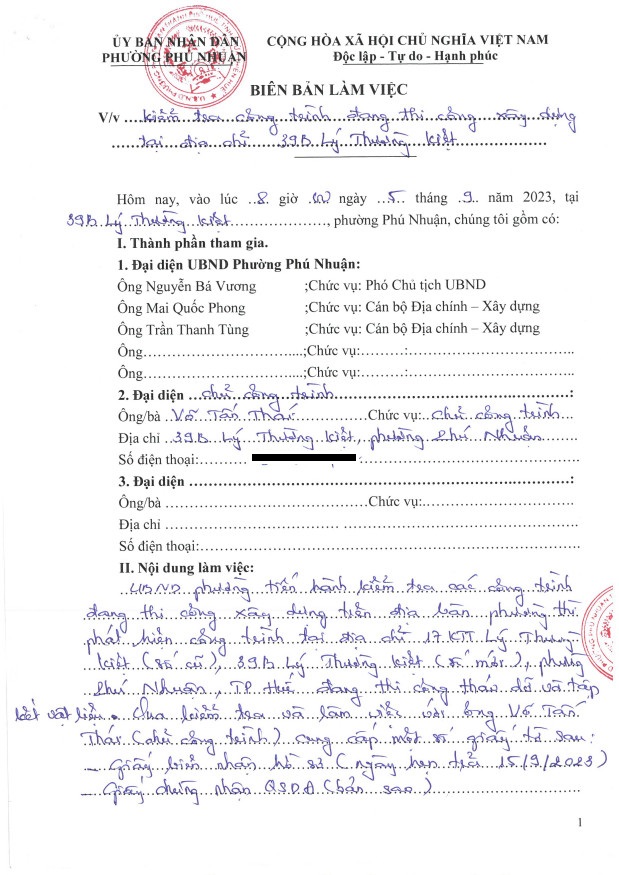 ỦY BAN NHÂN DÂN
PHƯỜNG PHÚ NHUẬN
CỘNG HÒA XÃ HỘI CHỦ NGHĨA VIỆT NAM
Độc lập - Tự do - Hạnh phúc
BIÊN BẢN LÀM VIỆC
V/v kiểm tra công trình đang thi công xây dựng
tại địa chỉ 39B Lý Thường Kiệt
Hôm nay, vào lúc 8 giờ 00 ngày 5 tháng 9 năm 2023, tại
39B Lý Thường Kiệt, phường Phú Nhuận, chúng tôi gồm có:
I. Thành phần tham gia.
1. Đại diện UBND Phường Phú Nhuận:
Ông Nguyễn Bá Vương ;Chức vụ: Phó Chủ tịch UBND
Ông Mai Quốc Phong ;Chức vụ: Cán bộ Địa chính – Xây dựng
Ông Trần Thanh Tùng ;Chức vụ: Cán bộ Địa chính – Xây dựng
Ông ;Chức vụ: :
Ông ;Chức vụ: :
2. Đại diện chủ công trình :
Ông/bà Võ Tấn Thái Chức vụ: Chủ công trình
Địa chỉ 39B Lý Thường Kiệt, phường Phú Nhuận
Số điện thoại:
3. Đại diện :
Ông/bà Chức vụ:
Địa chỉ
Số điện thoại:
II. Nội dung làm việc:
UBND phường tiến hành kiểm tra các công trình
đang thi công xây dựng trên địa bàn phường thì
phát hiện công trình tại địa chỉ 17 KTT Lý Thường
Kiệt (số cũ), 39B Lý Thường Kiệt (số mới), phường
Phú Nhuận, TP Huế đang thi công tháo dỡ và tập
kết vật liệu. Qua kiểm tra và làm việc với ông Võ Tấn
Thái (chủ công trình) cung cấp một số giấy tờ sau:
- Giấy biên nhận hồ sơ (ngày hẹn trả 15/9/2023)
- Giấy chứng nhận QSDĐ (bản sao)
1